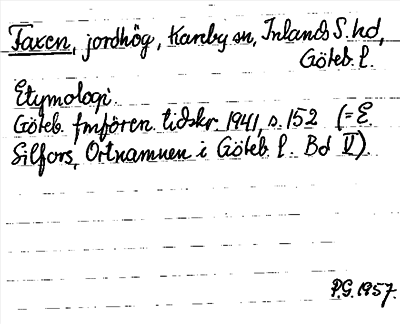 Faxen, jordhög, Kareby sn, Inlands S. hd,
Göteb. l.
Etymologi.
Göteb. fmfören. tidskr. 1941, s. 152 (= E.
Silfors, Ortnamnen i Göteb. l. Bd V).
P.G. 1957.